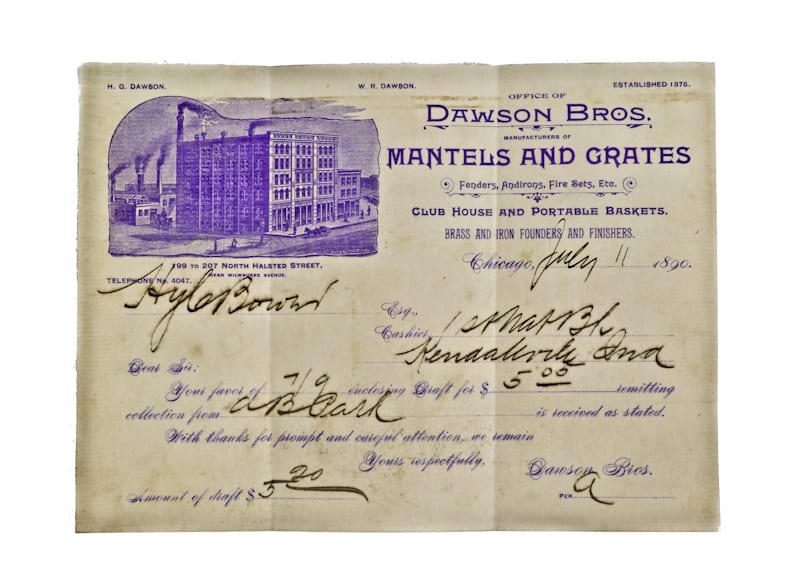 H. G. DAWSON. W. R. DAWSON. ESTABLISHED 1876.
OFFICE OF
DAWSON BROS.
MANUFACTURERS OF
MANTELS AND GRATES
Fenders, Andirons, Fire Sets, Etc.
CLUB HOUSE AND PORTABLE BASKETS.
BRASS AND IRON FOUNDERS AND FINISHERS.
199 TO 207 NORTH HALSTED STREET,
NEAR MILWAUKEE AVENUE.
TELEPHONE No. 4047.
Chicago, July 11 1890.
Esq.,
Cashier, 1st Nat Bk
Kendallville Ind
Dear Sir:
Your favor of 7/9 enclosing Draft for $ 5 00 remitting
collection from A B Park is received as stated.
With thanks for prompt and careful attention, we remain
Yours respectfully,
Dawson Bros.
Amount of draft $ 5 20
PER A